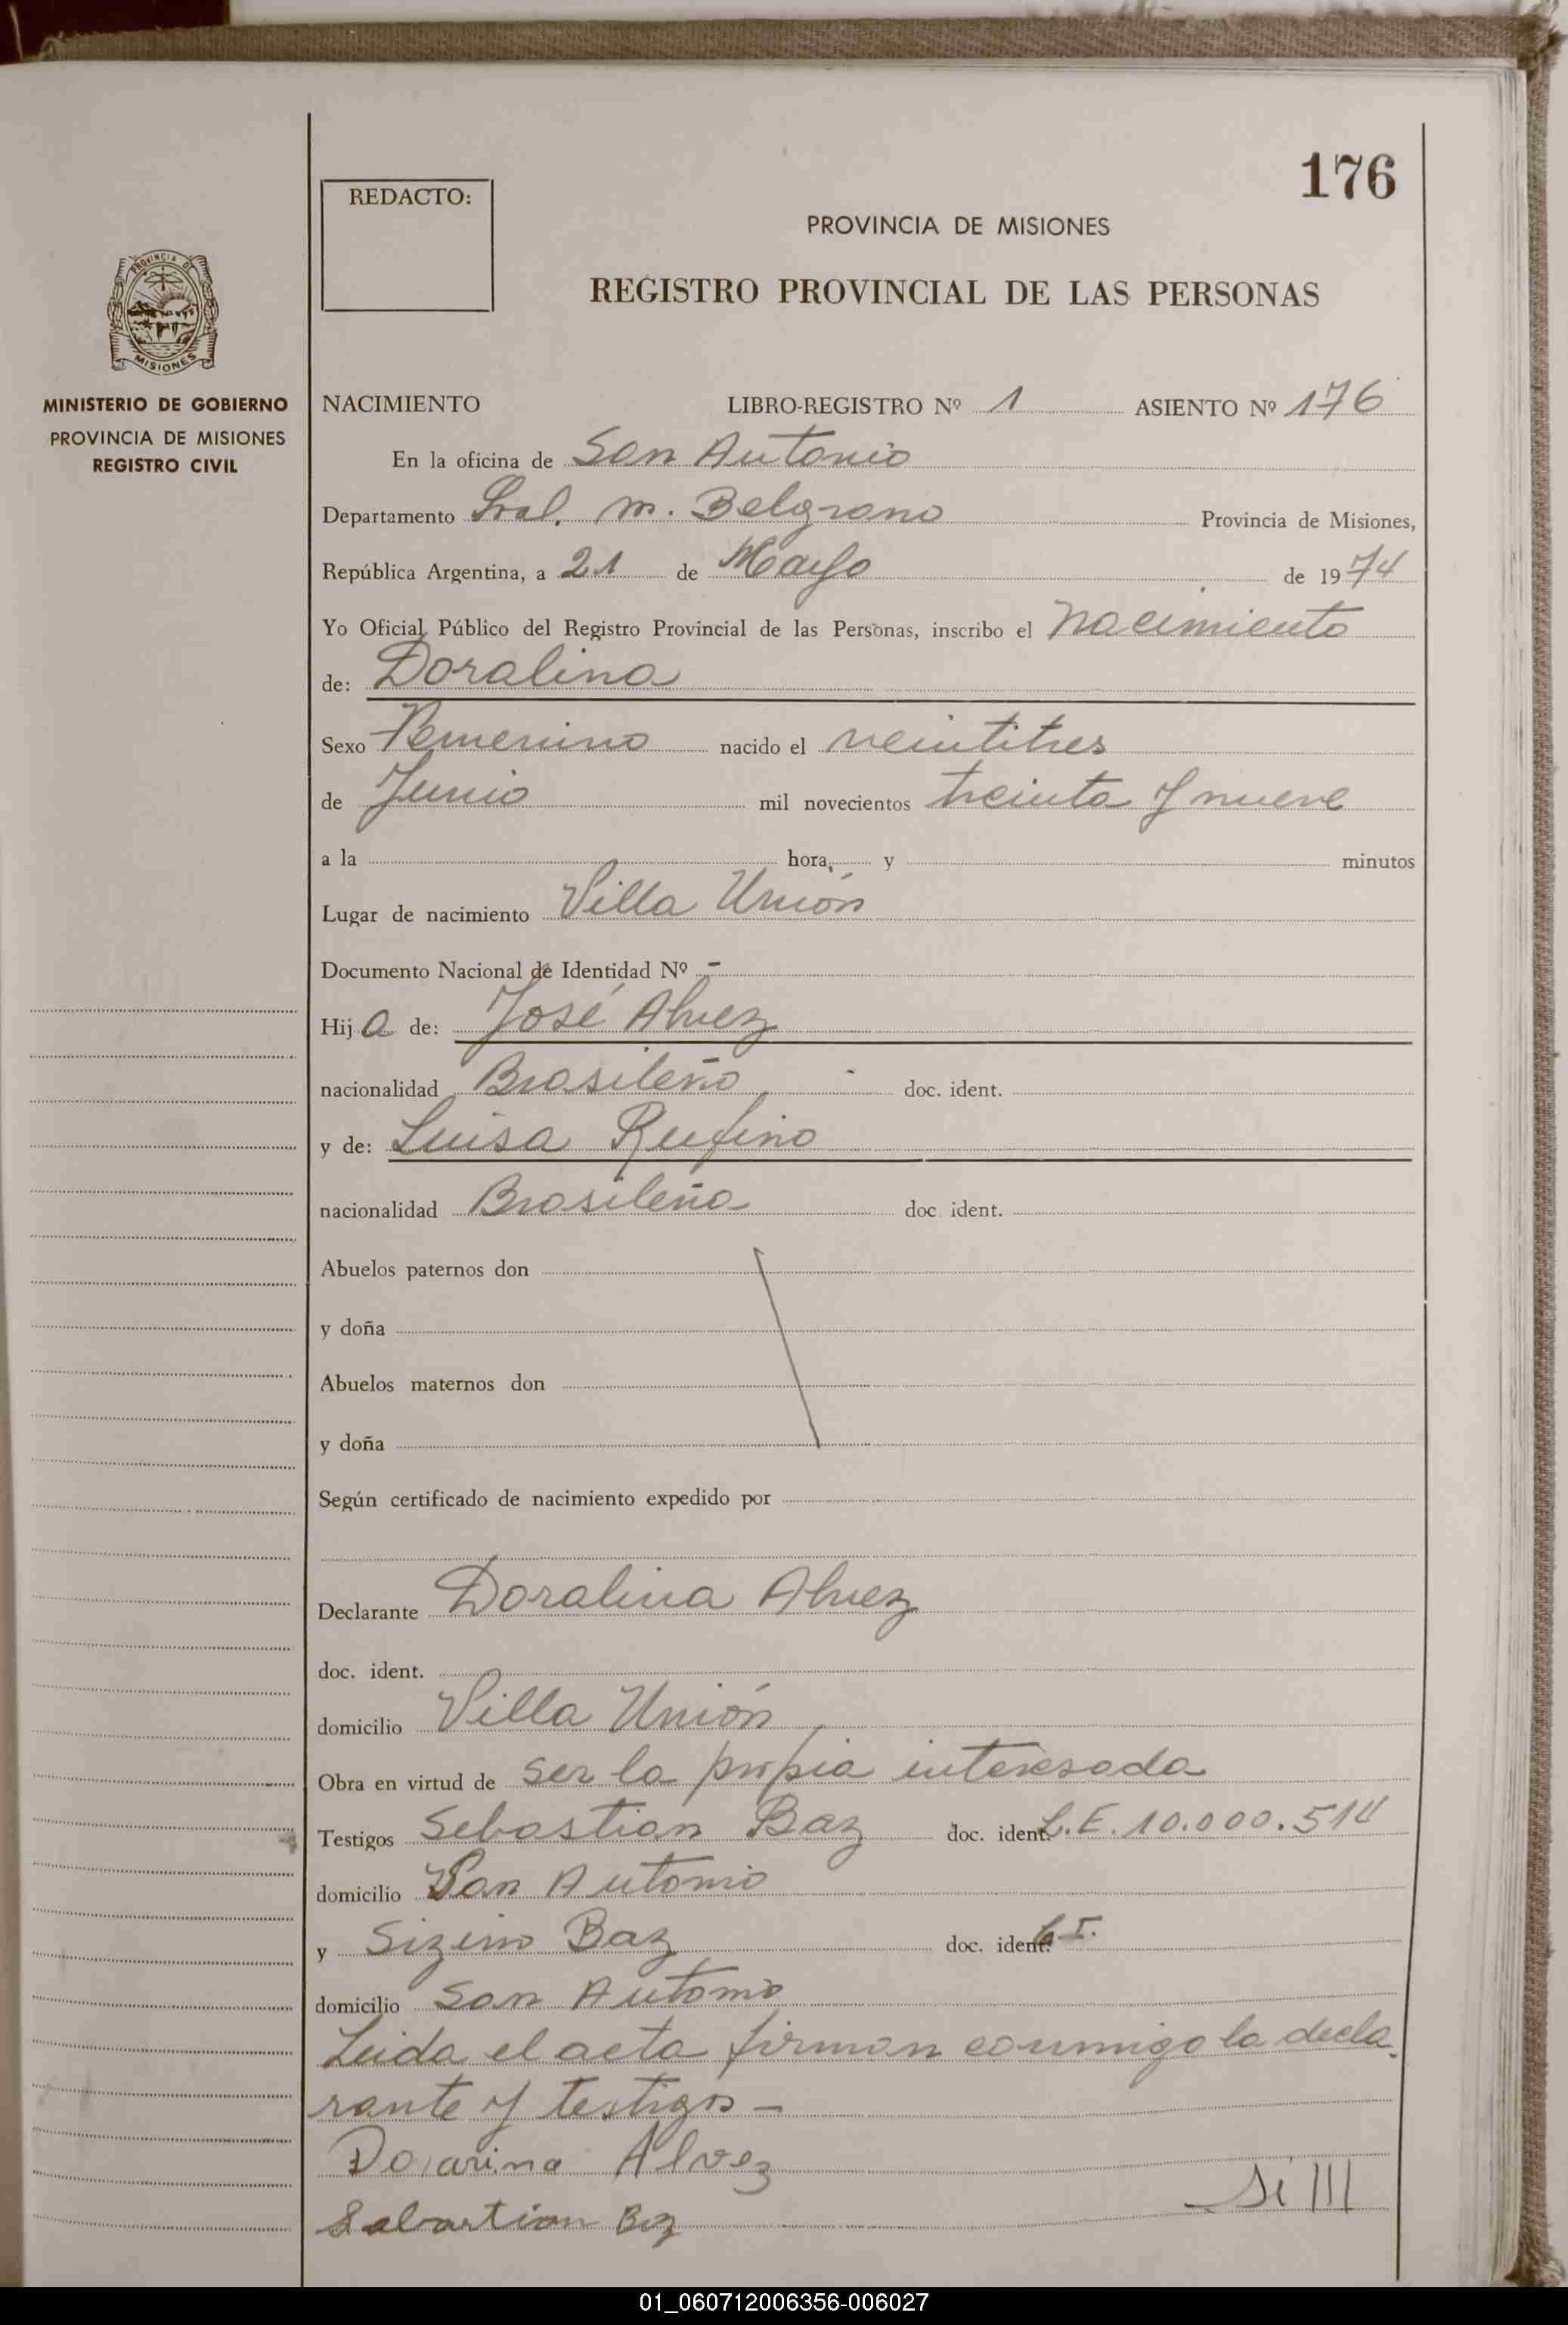 176
REDACTO:
PROVINCIA DE MISIONES
REGISTRO PROVINCIAL DE LAS PERSONAS
PROVINCIA DE
MISIONES
MINISTERIO DE GOBIERNO
PROVINCIA DE MISIONES
REGISTRO CIVIL
NACIMIENTO LIBRO-REGISTRO Nº 1 ASIENTO Nº 176
En la oficina de San Antonio
Departamento Gral. M. Belgrano Provincia de Misiones,
República Argentina, a 21 de Mayo de 1974
Yo Oficial Público del Registro Provincial de las Personas, inscribo el nacimiento
de: Doralina
Sexo Femenino nacido el veintitres
de Junio mil novecientos treinta y nueve
a la hora, y minutos
Lugar de nacimiento Villa Unión
Documento Nacional de Identidad Nº -
Hija de: José Alvez
nacionalidad Brasileño doc. ident.
y de: Luisa Rufino
nacionalidad Brasileña doc. ident.
Abuelos paternos don
y doña
Abuelos maternos don
y doña
Según certificado de nacimiento expedido por
Declarante Doralina Alvez
doc. ident.
domicilio Villa Unión
Obra en virtud de ser la propia interesada
Testigos Sebastian Baz doc. ident. L.E. 10.000.514
domicilio San Antonio
y Sizino Baz doc. ident. C.I.
domicilio San Antonio
Leida el acta firman conmigo la decla-
rante y testigos -
Dorarina Alvez
Sabartian Boz
01_060712006356-006027